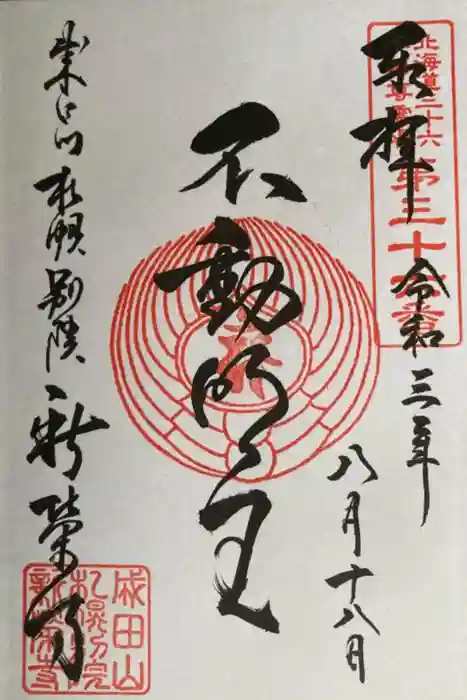 奉拝
令和三年
八月十八日
北海道三十六
第三十
不動明王
成田山札幌別院
新栄寺
成田山
札幌別院
新榮寺